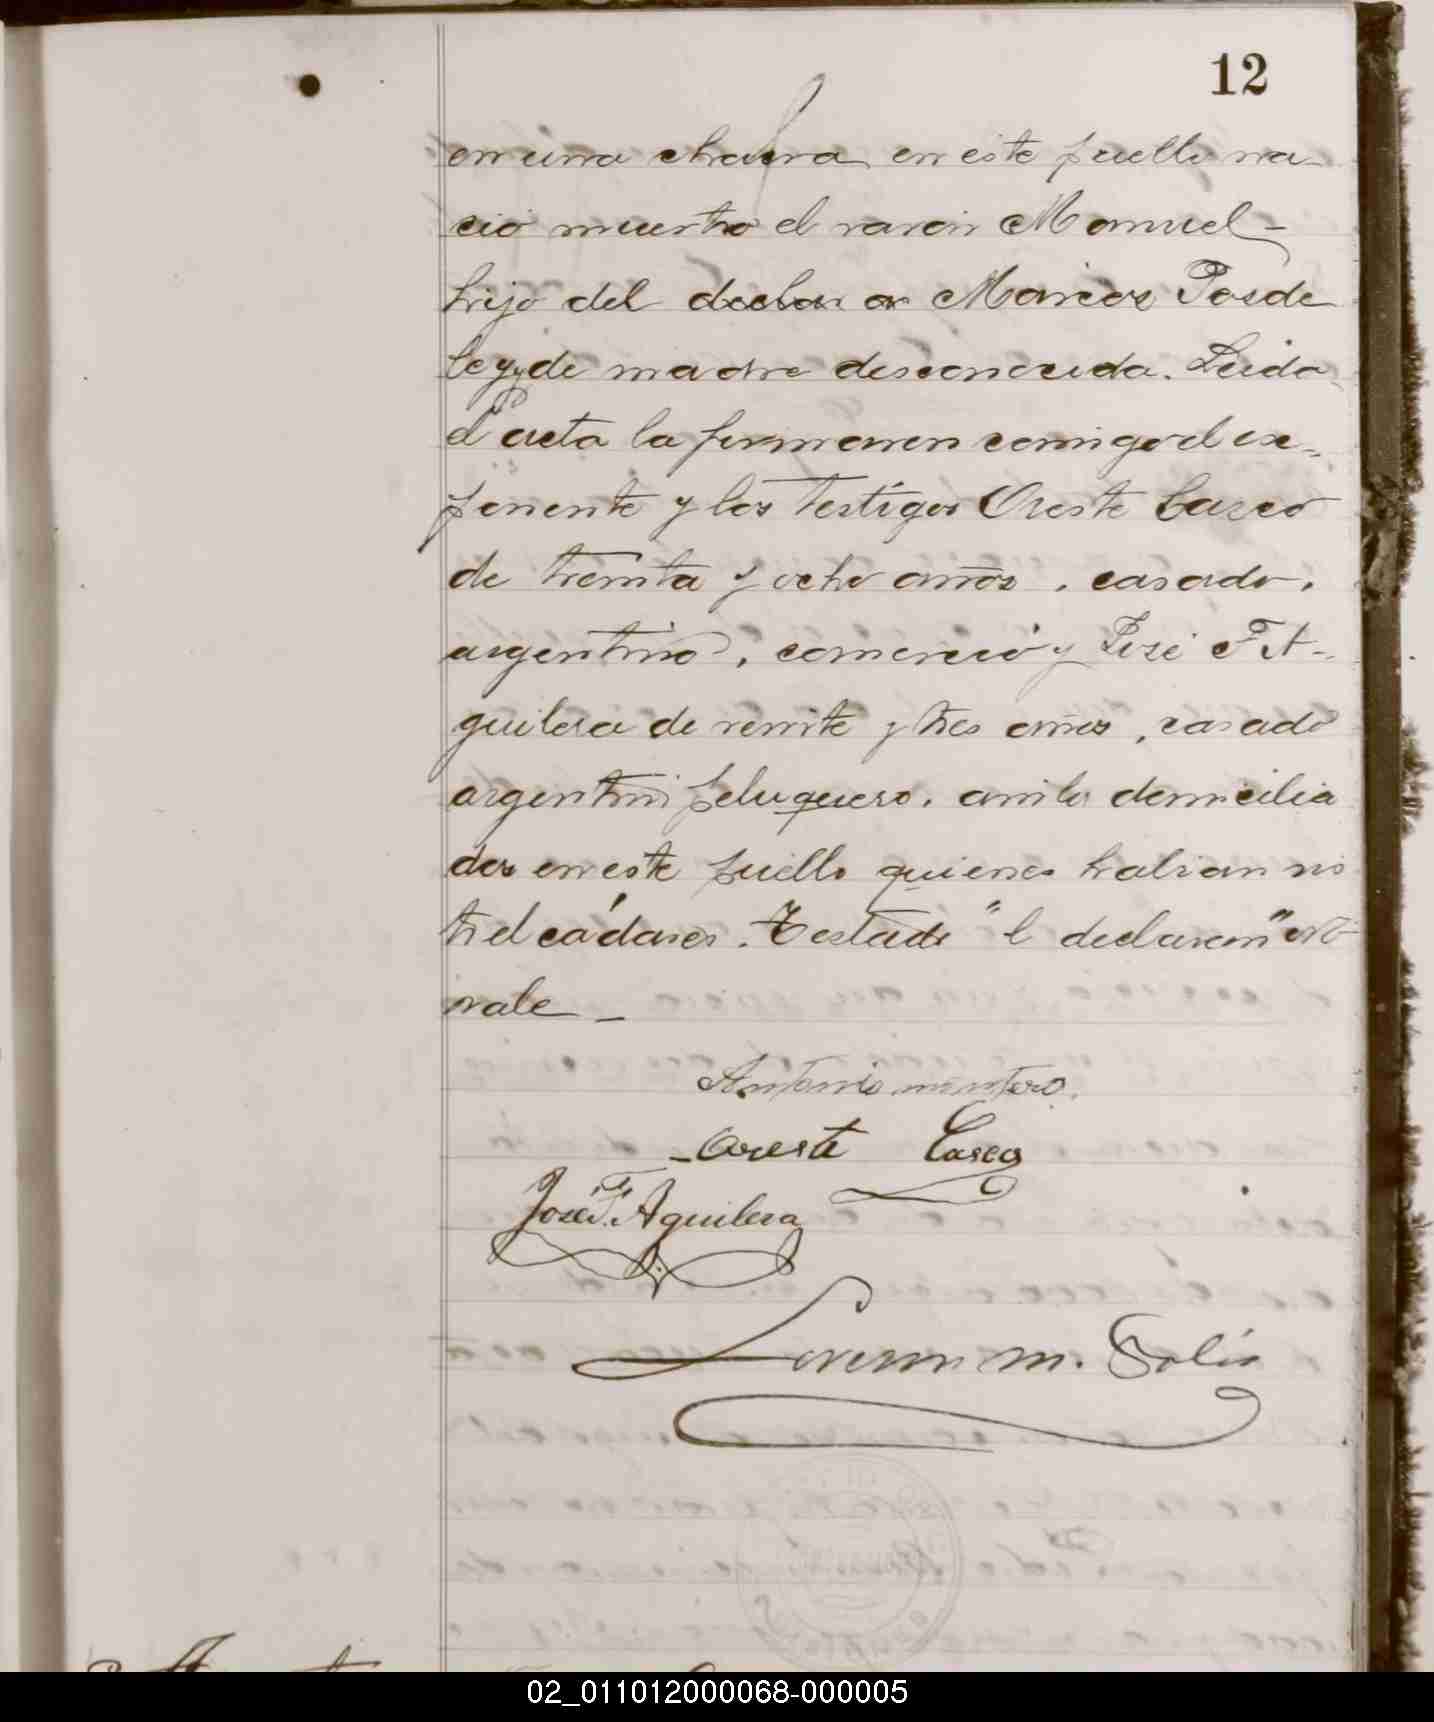 12
en una chacra en este pueblo na
ció muerto el varon Manuel
hijo del declar or Marcos
y de madre desconocida. Leida
el acta la firmaron conmigo el ex-
ponente y los testigos Oreste Casco
de treinta y ocho años, casado,
argentino, comercio y José F. A-
guilera de veinte y tres años, casado
argentino peluquero, ambos domicilia
dos en este pueblo quienes habian vis
to el cádaver. Testado "l declaran" no
vale _
Antonio montero.
_Oreste Casco
José F. Aguilera
m. Solis
02_011012000068-000005